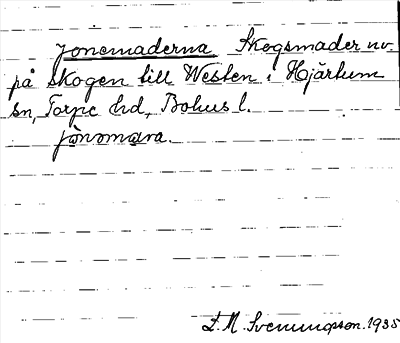 Jonemaderna Skogsmader nv.
på skogen till Westen i Hjärtum
sn, Torpe hd, Bohusl.
jònomạra.
D. M. Svenungsson. 1935